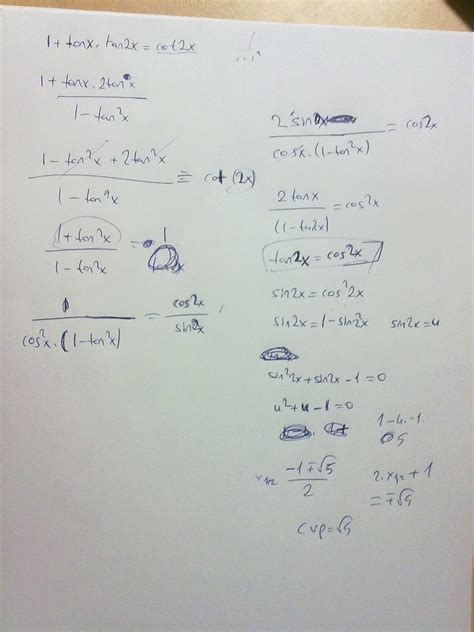 1 + tanx · tan2x = cot2x
1 / cos²
1 + tanx · 2tan x / 1 - tan²x
1 - tan²x + 2tan²x / 1 - tan²x = cot (2x)
1 + tan²x / 1 - tan²x = 1
1 / cos²x · (1 - tan²x) = cos2x / sin2x
2sin / cosx · (1 - tan²x) = cos2x
2tanx / (1 - tan2x) = cos²x
tan2x = cos2x
sin2x = cos²2x
sin2x = 1 - sin²2x sin2x = u
sin²2x + sin2x - 1 = 0
u² + u - 1 = 0
1 - 4 · -1
-1 ∓ √5 / 2
2 · x₁,₂ + 1
= ∓√5
cvp = √5